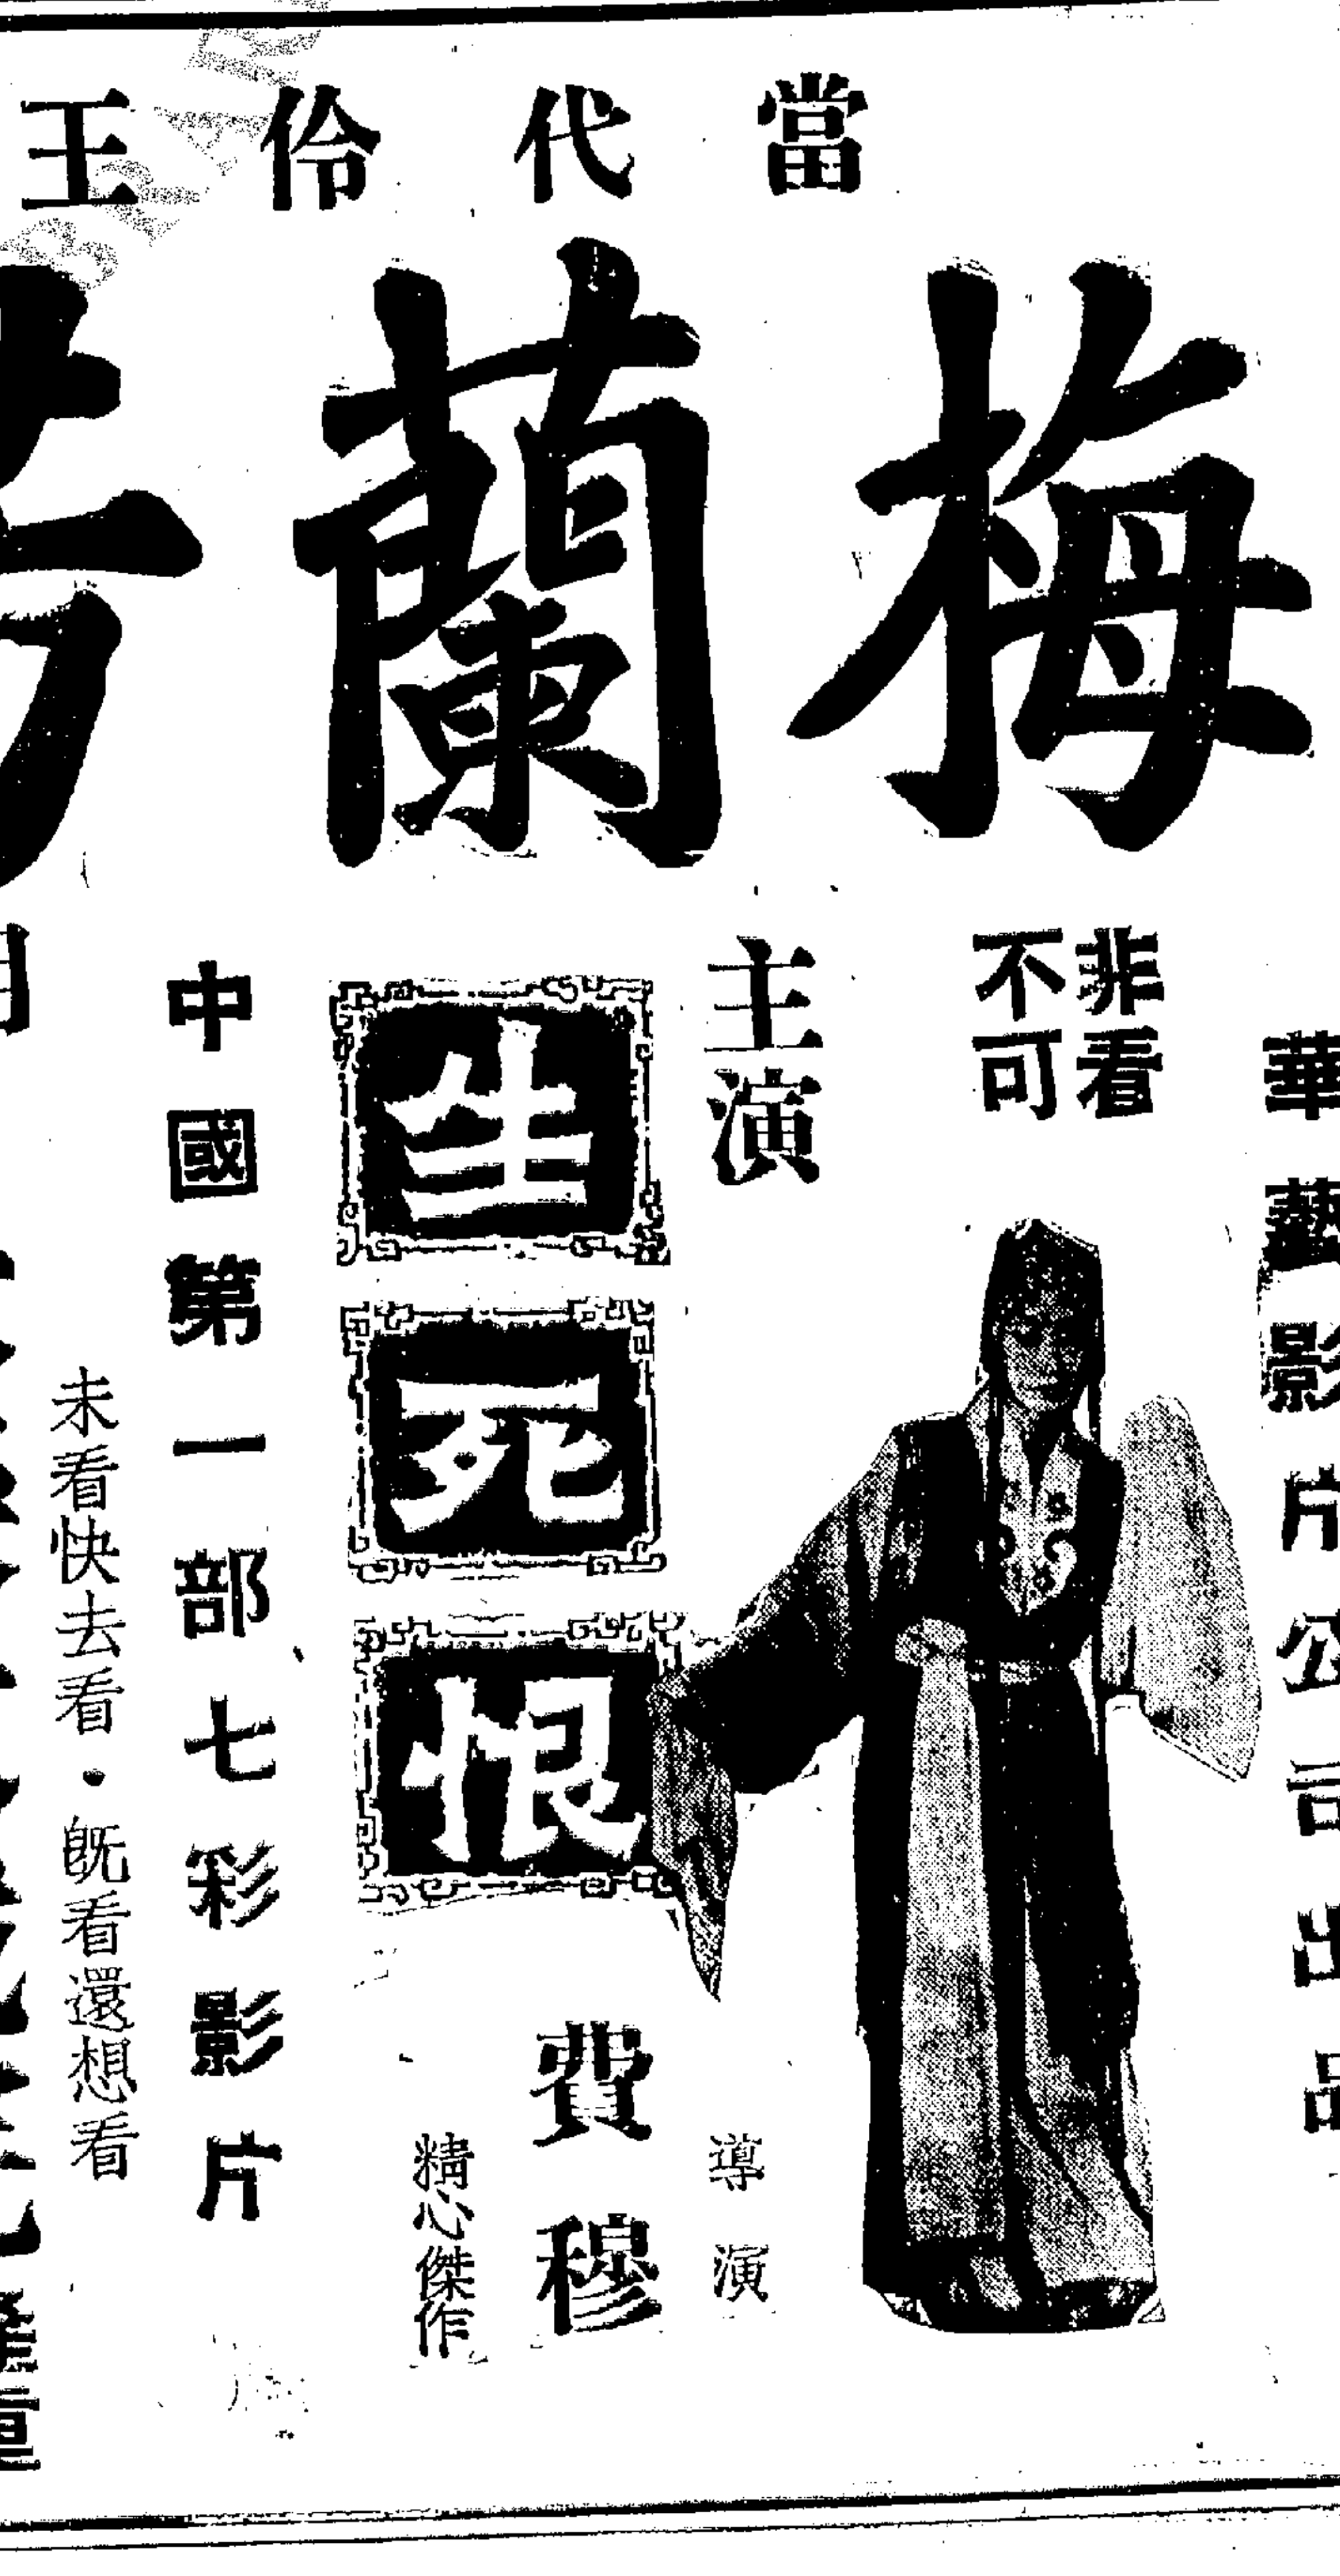 當代伶王
梅蘭芳
華藝影片公司出品
非看
不可
主演
生死恨
導演
費穆
精心傑作
中國第一部七彩影片
未看快去看・既看還想看